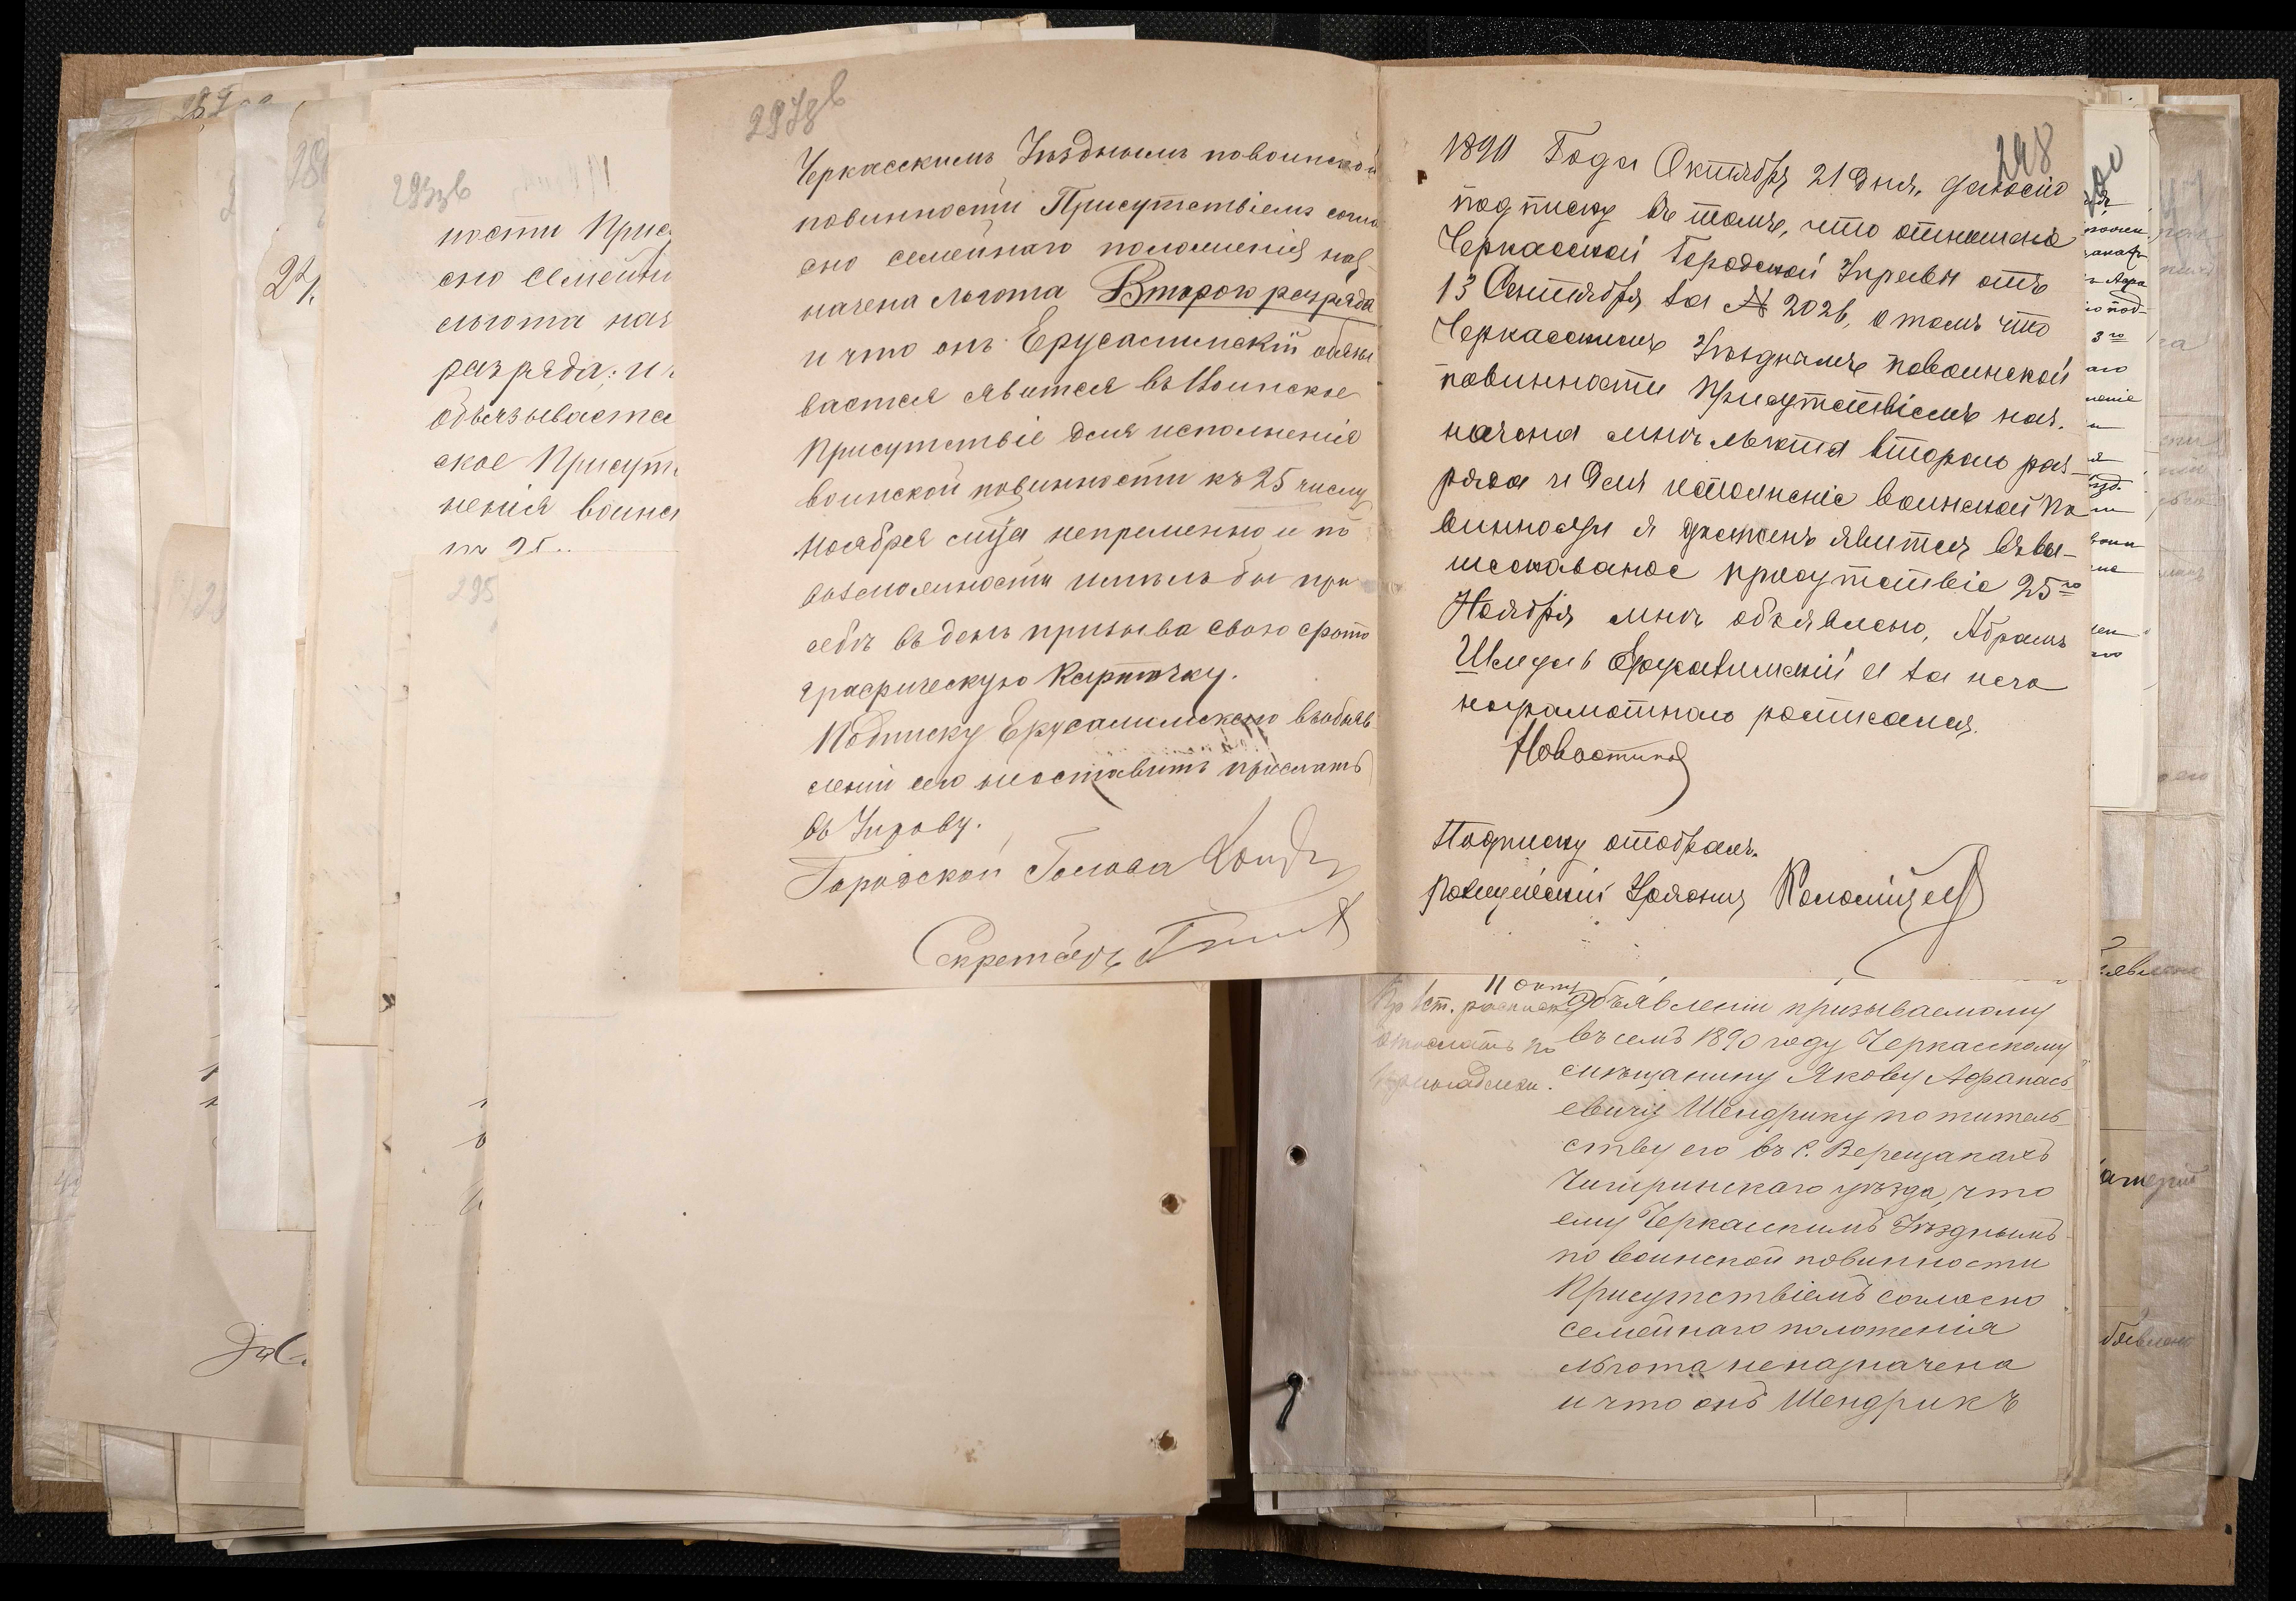 297зв
Черкасскимъ Уѣзднымъ по воинской
повинности Присутствіемъ согла
сно семейнаго положенія наз
начена льгота Второго разряда
и что онъ Ерусалимскій обязы
вается явится въ Воинское
Присутствіе для исполненія
воинской повинности къ 25 числу
Ноября с/г непременно и по
возможности имѣлъ бы при
себѣ въ день призыва свою фото
графическую карточку.
Подписку Ерусалимского въ объяв
леніи сего неоставить прислать
въ Управу.
Городской Голова
Секретарь
298
1890 Года Октября 21 дня, даю сію
подписку въ томъ, что отношеніе
Черкасской Городской Управы отъ
13 Сентября за № 2026, о томъ что
Черкасскимъ Уѣзднымъ по воинской
повинности Присутствіемъ наз-
начена мнѣ льгота второго раз-
ряда и для исполненіе воинской по
винности я долженъ явится въ вы-
шесказаное присутствіе 25го
Ноября мнѣ объявлено, Абрамъ
Шмуль Ерусалимскій а за него
неграмотнаго росписался.
Подписку отобралъ.
Полицейскій Урядникъ Коломіецъ
293зв
ности Прис
сно семейн
льгота наз
разряда: и
обязывается
ское Присут
ненія воинс
295
11 окт
объявленіи призываемому
въ семъ 1890 году Черкаскому
мѣщанину Якову Афанась
евичу Шендрику по житель
ству его въ с. Верещакахъ
Чигиринскаго уѣзда, что
ему Черкаскимъ Уѣзднымъ
по воинской повинности
Присутствіемъ согласно
семейнаго положенія
льгота неназначена
и что онъ Шендрикъ